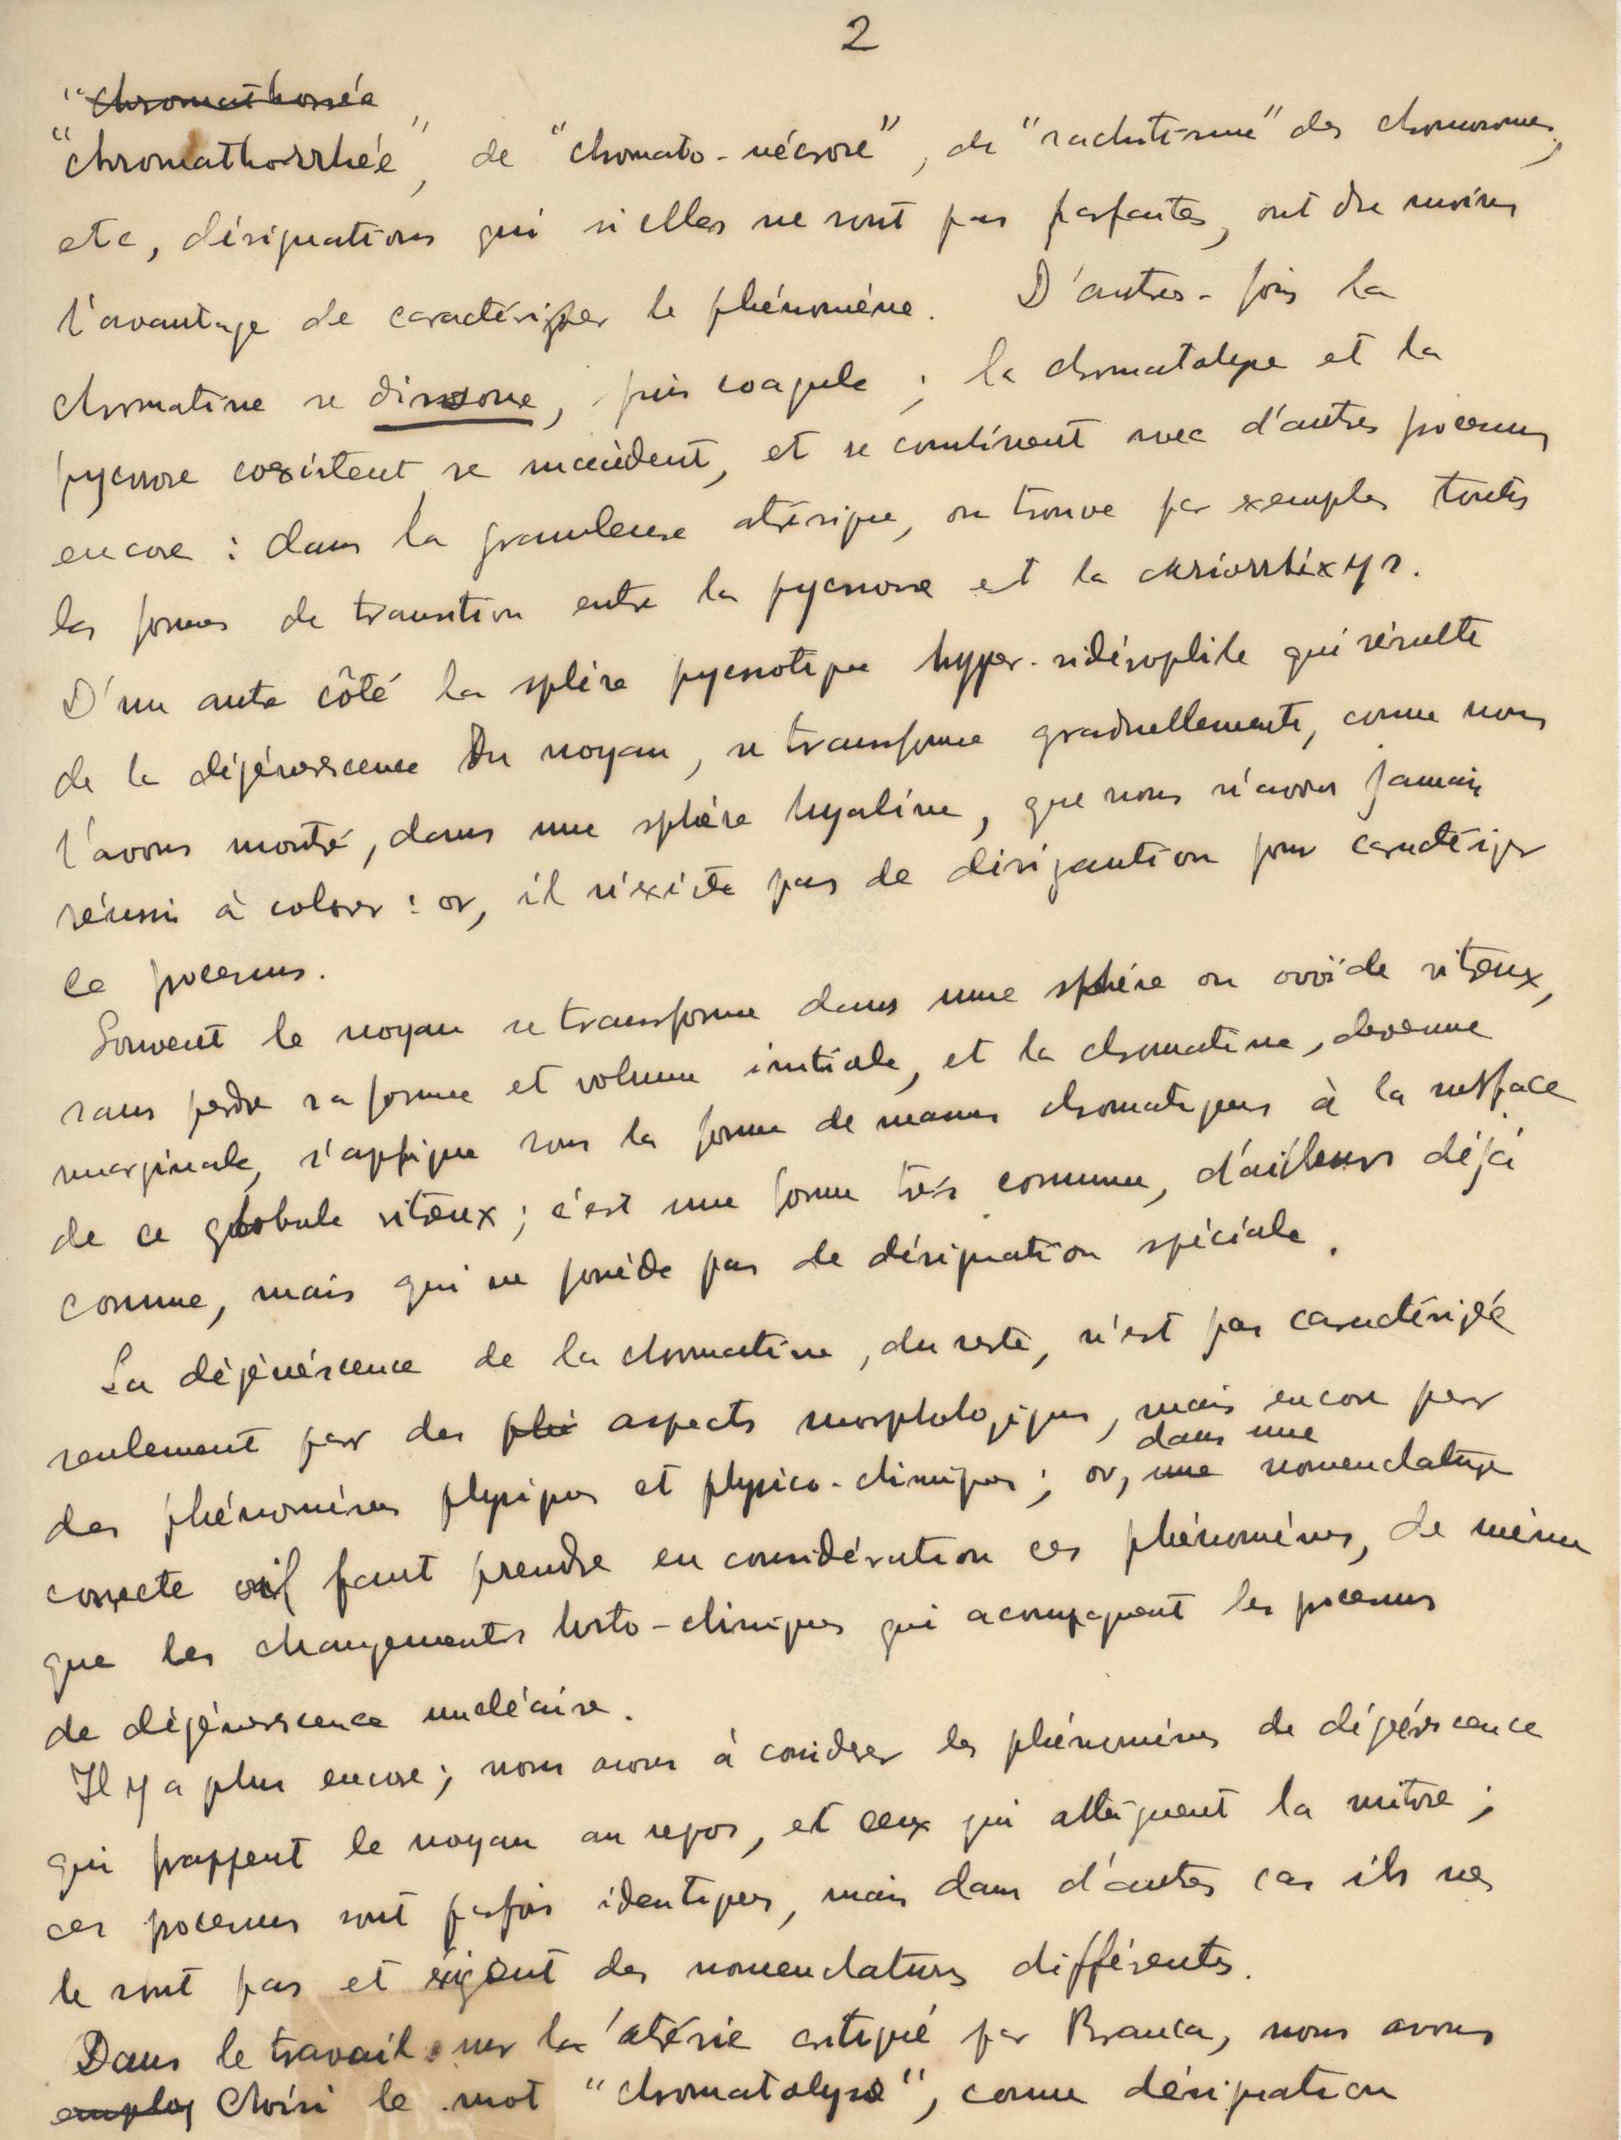 2
"chromathorrée
"chromathorrhée", de "chromato-nécrose", de "rachitisme" des chromosomes,
etc, désignations qui si elles ne sont pas parfaites, ont du moins
l'avantage de caractériser le phénomène. D'autres-fois la
chromatine se dissoue, puis coagule ; la chromatolyse et la
pycnose coexistent, se succèdent, et se combinent avec d'autres processus
encore : dans la granuleuse atrésique, on trouve par exemples toutes
les formes de transition entre la pycnose et la cariorrhéxys.
D'un autre côté la sphère pycnotique hyper-sidérophile qui résulte
de la dégénerescence du noyau, se transforme graduellemente, comme nous
l'avons montré, dans une sphère hyaline, que nous n'avons jamais
réussi à colorer : or, il n'existe pas de désigantion pour caractériser
ce processus.
Souvent le noyau se transforme dans une sphère ou ovoïde vitreux,
sans perdre sa forme et volume initiale, et la chromatine, devenue
marginale, s'applique sous la forme de masses chromatiques à la surface
de ce globule vitreux ; c'est une forme très commune, d'ailleurs déjà
connue, mais qui ne possède pas de désignation spéciale.
La dégénéscence de la chromatine, du reste, n'est pas caractérisée
seulement par des phé aspects morphologiques, mais encore par
dans une
des phénomènes physiques et physico-chimiques ; or, une nomenclature
correcte oú il faut prendre en considération ces phénomènes, de même
que les changements histo-chimiques qui acompagnent les processus
de dégénerescence nucléaire.
Il y a plus encore ; nous avons à considerer les phénomènes de dégéréscence
qui frappent le noyau au repos, et ceux qui attaignent la mitose ;
ces processus sont parfois identiques, mais dans d'autres cas ils ne
le sont pas et éxigent des nomenclatures différentes.
Dans le travail sur la atrésie critiqué par Branca, nous avons
employ choisi le mot "chromatolyse", comme désignation